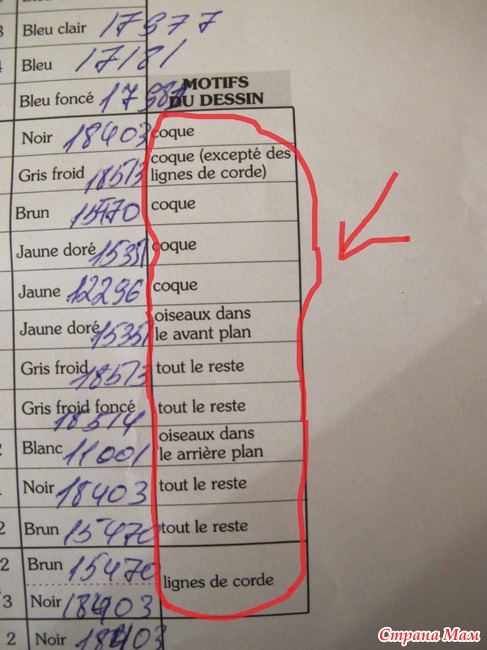 3 Bleu clair 17977
Bleu 17121
Bleu foncé 17981
MOTIFS
DU DESSIN
Noir 18403 coque
coque (excepté des
Gris froid 18513 lignes de corde)
Brun 15470 coque
Jaune doré 15351 coque
Jaune 12296 coque
oiseaux dans
Jaune doré 15351 le avant plan
Gris froid 18513 tout le reste
Gris froid foncé tout le reste
18514
oiseaux dans
2 Blanc 11001 le arrière plan
Noir 18403 tout le reste
2 Brun 15470 tout le reste
2 Brun 15470
lignes de corde
3 Noir 18403
2 Noir 18403
Страна Мам